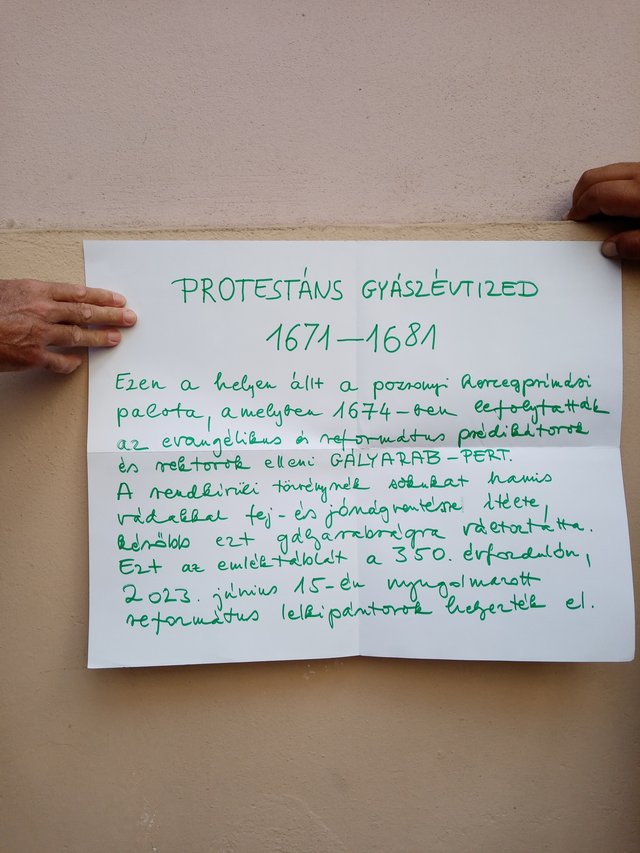 PROTESTÁNS GYÁSZÉVTIZED
1671—1681
Ezen a helyen állt a pozsonyi hercegprímási
palota, amelyben 1674-ben lefolytatták
az evangélikus és református prédikátorok
és rektorok elleni GÁLYARAB-PERT.
A rendkívüli törvényszék sokukat hamis
vádakkal fej- és jószágvesztésre ítélte,
később ezt gályarabságra változtatta.
Ezt az emléktáblát a 350. évfordulón,
2023. június 15-én nyugalmazott
református lelkipásztorok helyezték el.